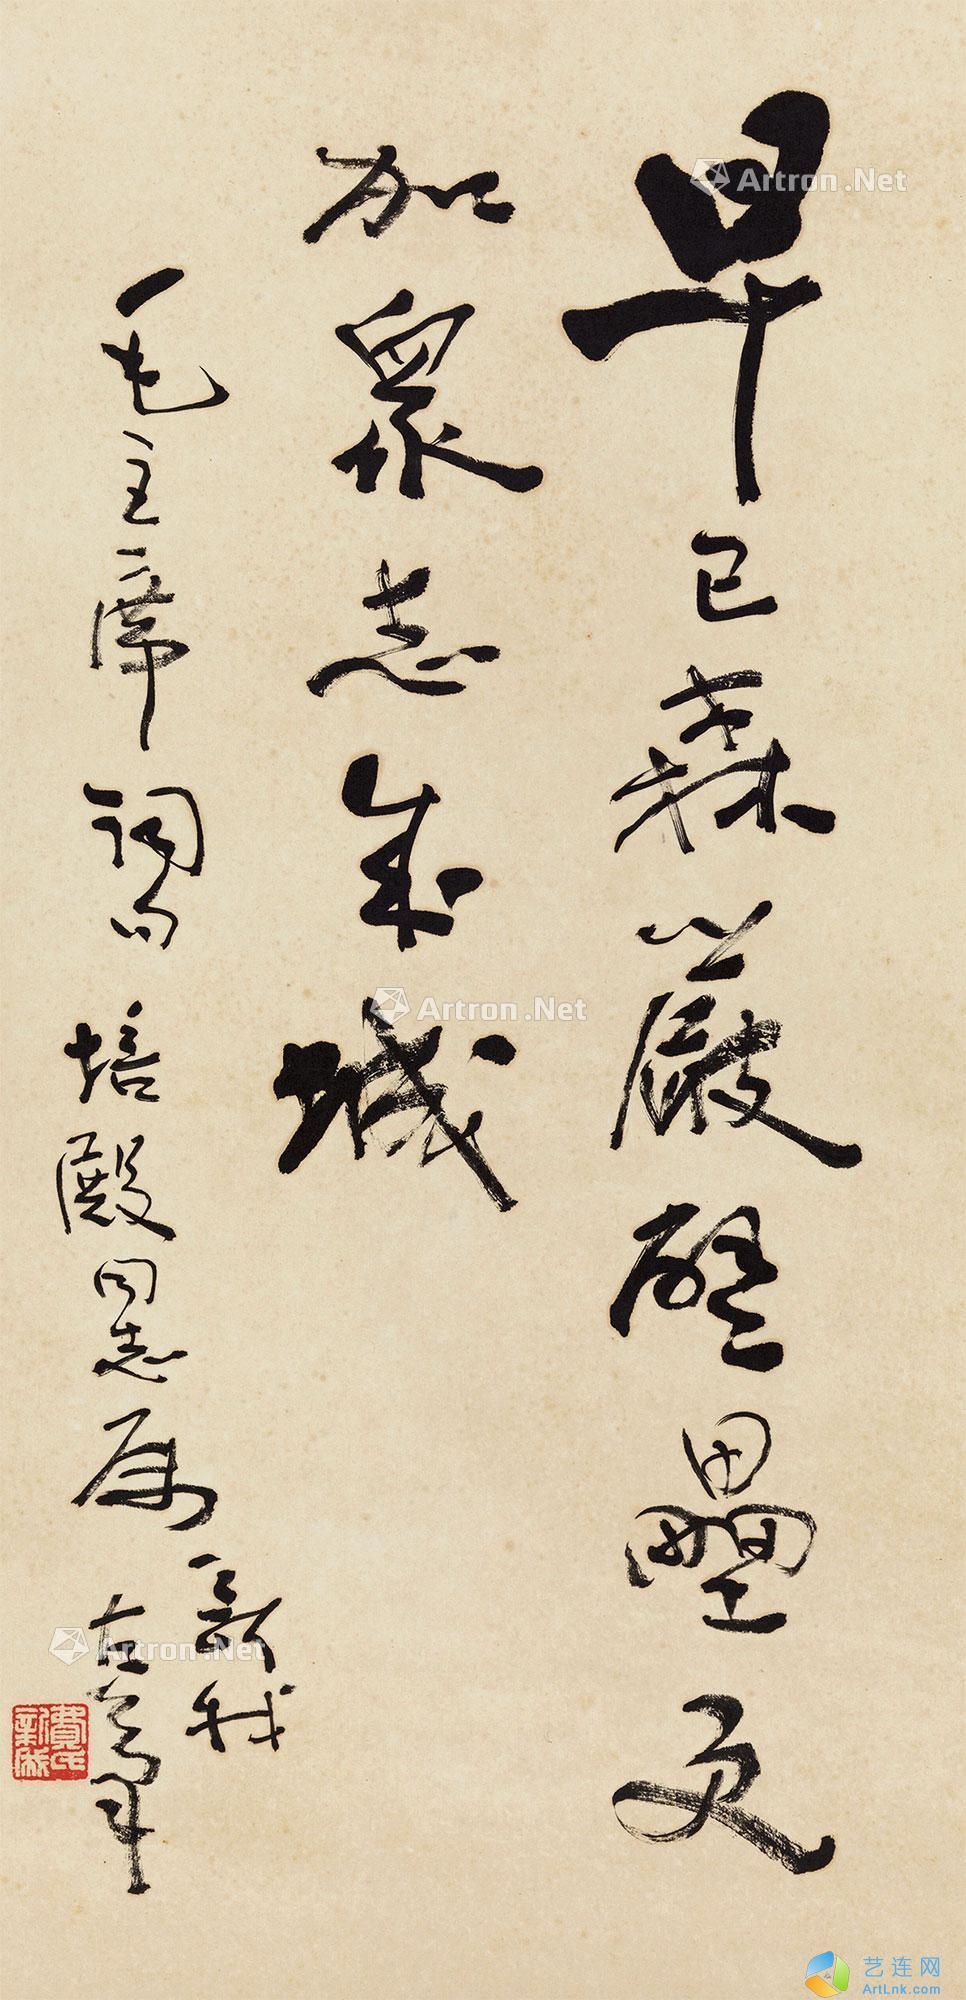 早已森嚴壁壘更
加衆志成城
毛主席詞句 培殿同志属
新我
左筆
費氏
新我
Artron.Net
Artron.Net
Artron.Net
艺连网
ArtLnk.com